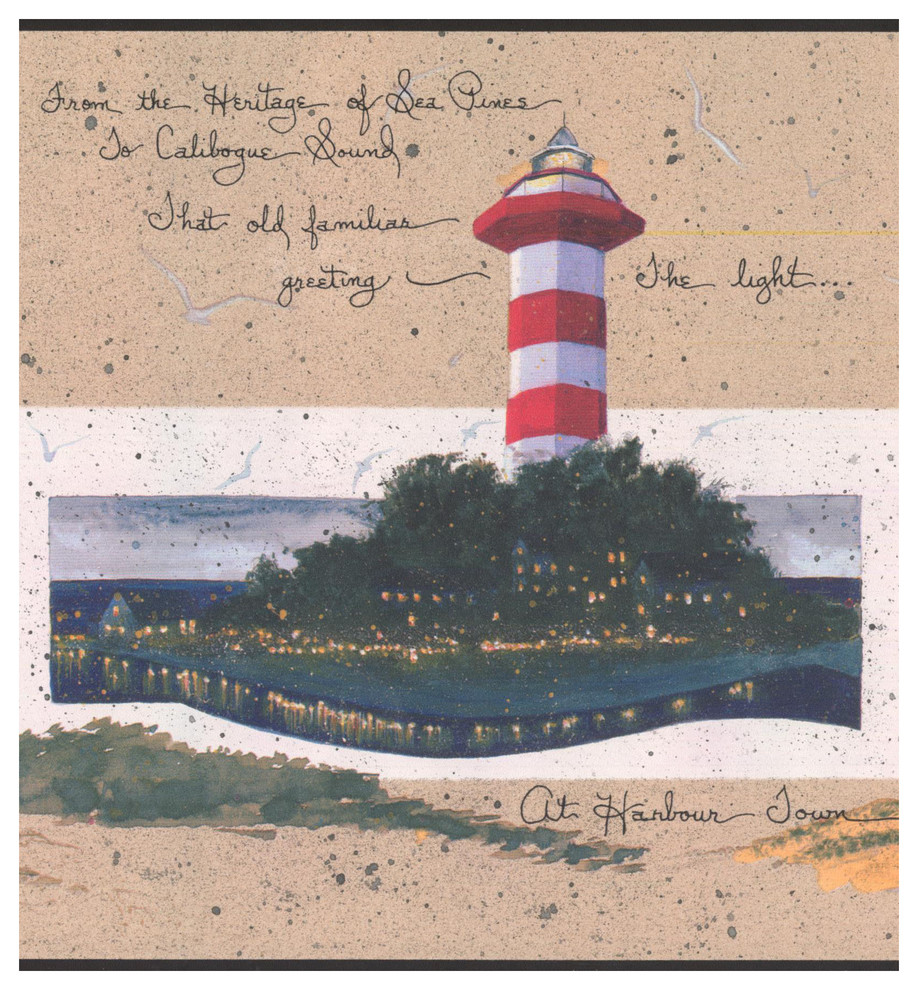 From the Heritage of Sea Pines
To Calibogue Sound
That old familiar
greeting The light...
At Harbour Town